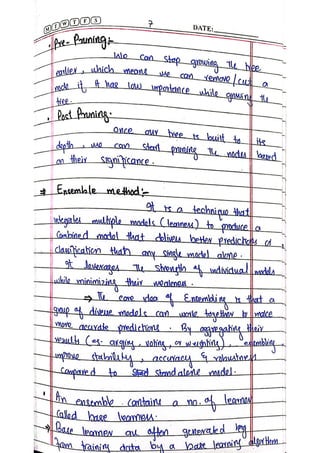 M T W T F S 7 DATE:
• Pre-Pruning:-
We can stop growing the tree
earlier, which means we can remove/cut a
node if it has low importance while growing the
tree.
• Post Pruning.
Once our tree is built to its
depth, we can start pruning the nodes based
on their significance.
⇒ Ensemble method:-
It is a technique that
integrates multiple models (learners) to produce a
combined model that delivers better predictions
classification than any single model alone.
It leverages the strength of individual models
while minimizing their weakness.
⇒ The core idea of Ensembling is that a
group of diverse models can work together to make
more accurate predictions. By aggregating their
result (eg. voting, or weighting), ensembling
improve stability, accuracy & robustness
Compared to stand alone model.
• An ensemble contains a no. of learner
called base learners.
⇒ Base learner are often generated by
from training data by a base learning algorithm